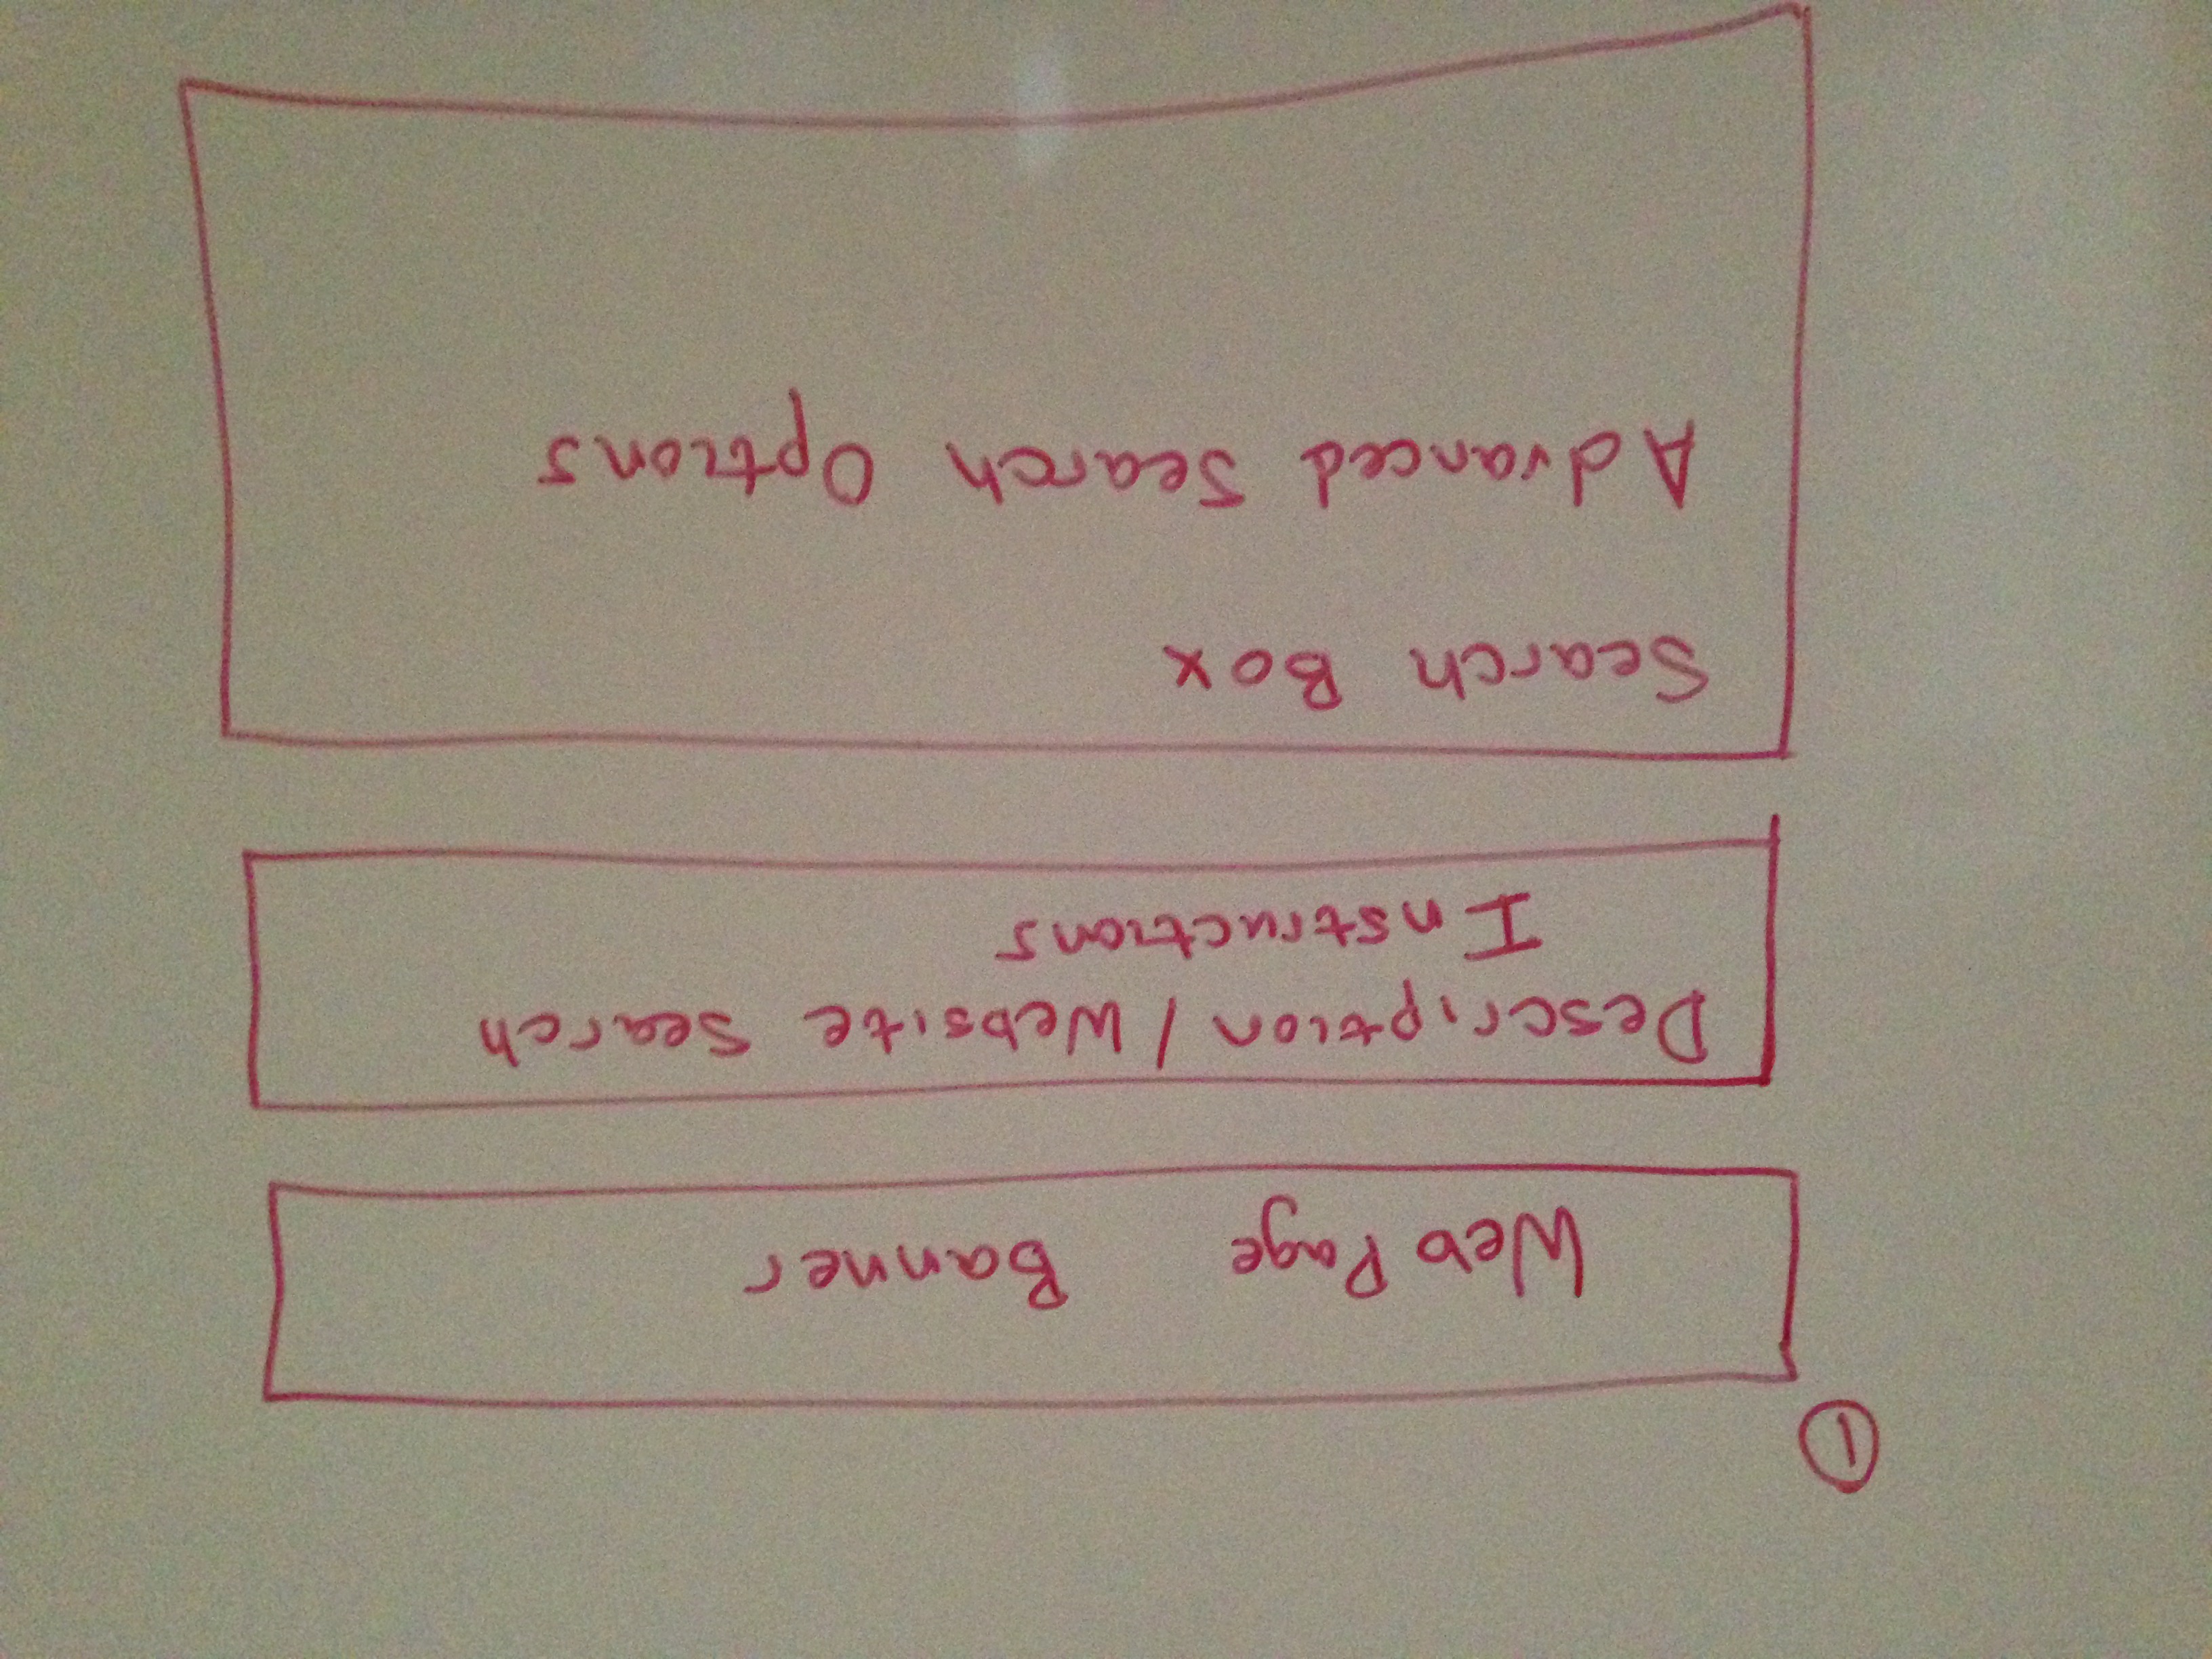 ①
Web Page Banner
Description / Website Search
Instructions
Search Box
Advanced Search Options